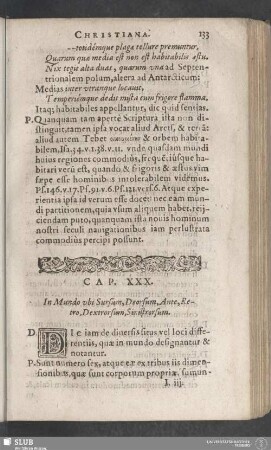 CHRISTIANA. 133
--totidémque plaga tellure premuntur,
Quarum quæ media est non est habitabilis æstu.
Nix tegit alta duas, quarum una ad Septen-
trionalem polum, altera ad Antarcticum:
Medias inter utranque locavit,
Temperiémque dedit mista cum frigore flamma.
Itaq; habitabiles appellantur, dic quid sentias.
P. Quanquam tam apertè Scriptura ista non di
stinguit, tamen ipsa vocat aliud Arets, & ter-
aliud autem Tebel & orbem habi-
abilem, Isa.34.v.1.38.v.11. unde quasdam mundi
huius regiones commodiùs, frequẽtiúsque ha-
bitari veru est, quando & frigoris & æstus vim
sæpe esse hominibus intolerabilem videmus.
Ps.146.v.17.Ps.91.v.6.Ps.121.vers.6. Atque expe-
rientia ipsa id verum esse docet: nec eam mun-
di partitionem, quia usum aliquem habet, rei-
ciendam puto, quanquam ista novis hominum
nostri seculi navigationibus iam perlustrata
commodius percipi possunt.
CAP. XXX.
In Mundo ubi Sursum, Deorsum, Ante, Re-
tro, Dextrorsum, Sinistrorsum.
D. DIc iam de diversis situs vel loci diffe-
rentiis, quæ in mundo designantur &
notantur.
P. Sunt numero sex, atque eæ ex tribus iis dimen-
sionibus, quæ sunt corporum propriæ, sumun-
I. iij.
SLUB